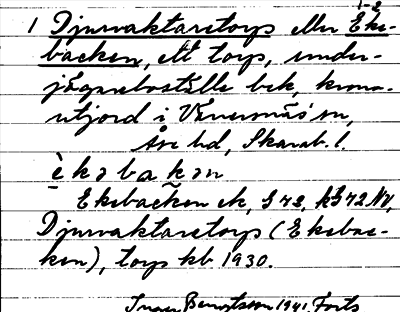 1-2
1 Djurvaktaretorp eller Eke-
backen, ett torp, under-
jägareboställe bek, krono-
utjord i Vänersnäs sn,
Åse hd, Skarab. l.
è k ə ba k ən
Ekebacken ek, G 42,
Djurvaktaretorp (Ekebac-
ken), torp kb 1930.
Ivar Bengtsson 1941. Forts